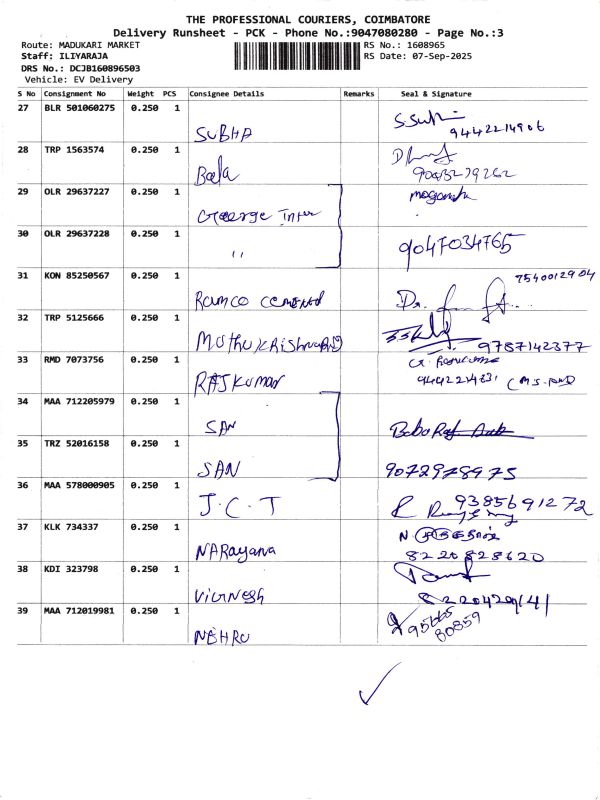 THE PROFESSIONAL COURIERS, COIMBATORE
Delivery Runsheet - PCK - Phone No.:9047080280 - Page No.:3
Route: MADUKARI MARKET RS No.: 1608965
Staff: ILIYARAJA RS Date: 07-Sep-2025
DRS No.: DCJB160896503
Vehicle: EV Delivery
S No Consignment No Weight PCS Consignee Details Remarks Seal & Signature
27 BLR 501060275 0.250 1
SUBHA 9442214906
28 TRP 1563574 0.250 1
Bala
29 OLR 29637227 0.250 1
George Inter
30 OLR 29637228 0.250 1
" 9047034765
31 KON 85250567 0.250 1 7540012904
Ramco
32 TRP 5125666 0.250 1
9787142377
33 RMD 7073756 0.250 1
RAJKumar
34 MAA 712205979 0.250 1
SAN
35 TRZ 52016158 0.250 1
SAN 9072978975
36 MAA 578000905 0.250 1
J.C.T 9385691272
37 KLK 734337 0.250 1
NARayana 8220828620
38 KDI 323798 0.250 1
VIGNESH 8220429141
39 MAA 712019981 0.250 1
NEHRU 95665
80859